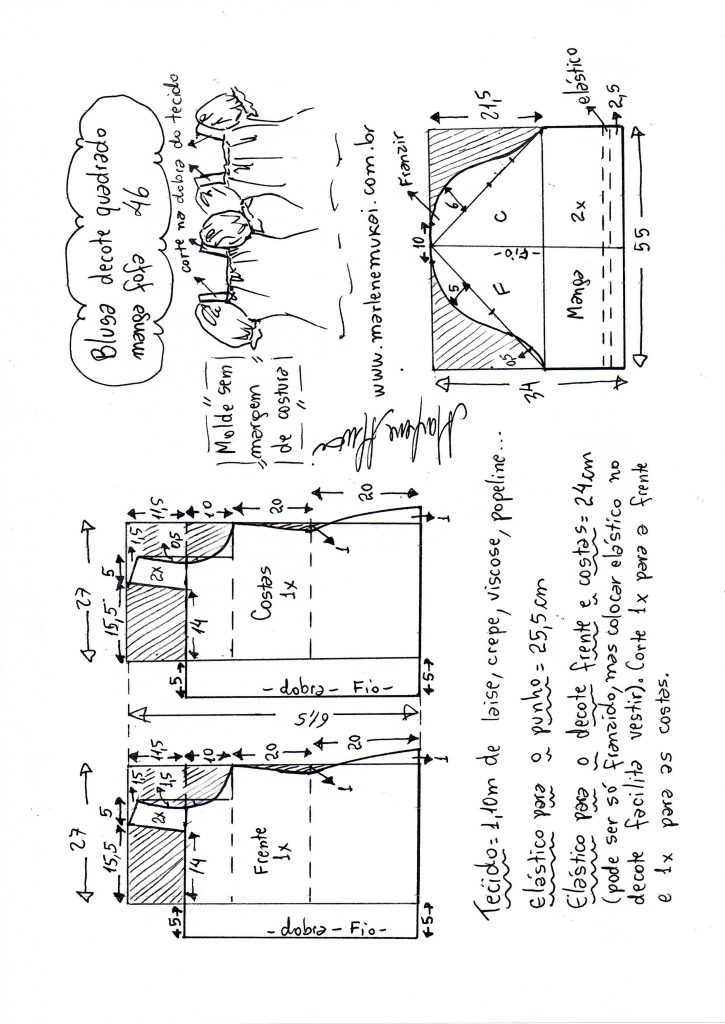 Blusa decote quadrado
manga fofa 46
corte na dobra do tecido
Molde sem
margem
de costura
www.marlenemukai.com.br
27
15,5
5
1,5
11,5
2x
1,5
10
14
Frente
1x
20
20
1
1
5
5
- dobra - Fio -
61,5
27
15,5
5
1,5
11,5
2x
0,5
10
14
Costas
1x
20
20
1
1
5
5
- dobra - Fio -
Franzir
10
21,5
34
5
6
0,5
F
C
- Fio -
Manga
2x
elástico
2,5
55
Tecido = 1,10m de laise, crepe, viscose, popeline...
Elástico para o punho = 25,5cm
Elástico para o decote frente e costas = 24cm
(pode ser só franzido, mas colocar elástico no
decote facilita vestir). Corte 1x para a frente
e 1x para as costas.